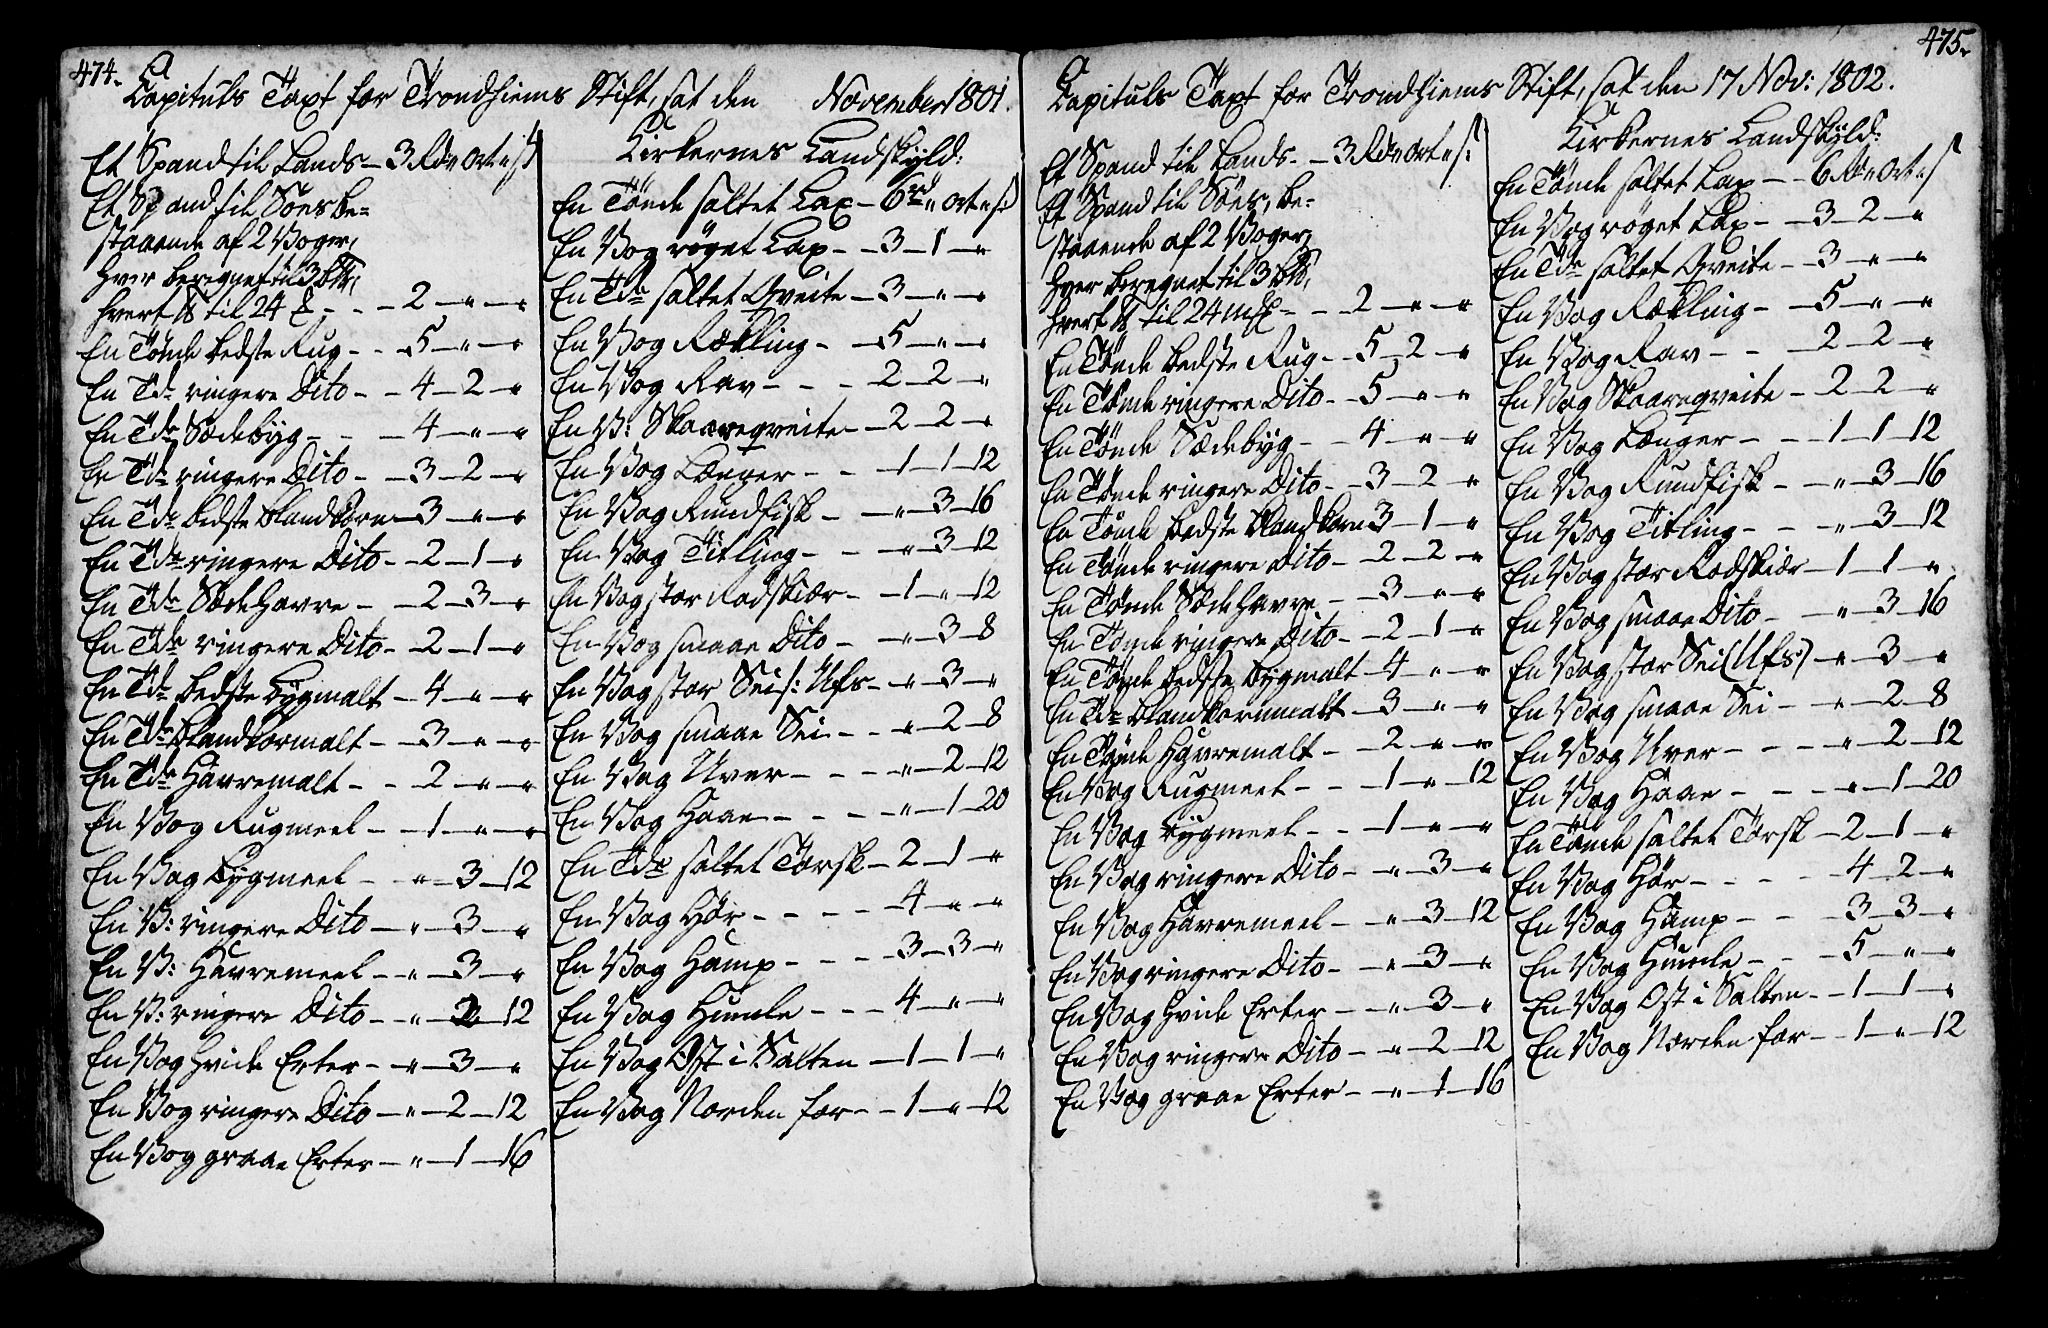 474.
Capituls Taxt for Trondhiems Stift, sat den November 1801.
Et Spand til Lands – 3 Rd " ort " s
Et Spand til Søes be=
staaende af 2 Voger,
hver beregnet til 3 b℔,
hvert ℔ til 24 – – 2 – " – "
En Tønde bedste Rug – – 5 – " – "
En Tde ringere Dito – – 4 – 2 – "
En Tde Sædebyg – – – 4 – " – "
En Tde ringere Dito – – 3 – 2 – "
En Tde bedste blandkorn – 3 – " – "
En Tde ringere Dito – – 2 – 1 – "
En Tde Sædehavre – – 2 – 3 – "
En Tde ringere Dito – – 2 – 1 – "
En Tde bedste bygmalt – 4 – " – "
En Tde blandkormalt – – 3 – " – "
En Tde Havremalt – – 2 – " – "
En Vog Rugmeel – – 1 – " – "
En Vog bygmeel – – " – 3 – 12
En V: ringere Dito – " – 3 – "
En V: Havremeel – – " – 3 – "
En V: ringere Dito – – " – 2 – 12
En Vog hvide Erter – – " – 3 – "
En Vog ringere Dito – " – 2 – 12
En Vog graae Erter – – " – 1 – 16
Kirkernes Landskyld:
En Tønde saltet Lax – 6 rd " ort " s:
En Vog røget Lax – – 3 – 1 – "
En Tde saltet Qveite – 3 – " – "
En Vog Rækling – – 5 – " – "
En Vog Rav – – – 2 – 2 – "
En V: Skaareqveite – 2 – 2 – "
En Vog Længer – – – 1 – 1 – 12
En Vog Rundfisk – – " – 3 – 16
En Vog Titling – – – " – 3 – 12
En Vog stor Rodskiær – – 1 – " – 12
En Vog smaae Dito – – " – 3 – 8
En Vog stor Sei /: Ufs – " – 3 – "
En Vog smaae Sei – – " – 2 – 8
En Vog Uver – – – " – 2 – 12
En Vog Haae – – – – " – 1 – 20
En Tde saltet Torsk – 2 – 1 – "
En Vog Hør – – – – 4 – " – "
En Vog Hamp – – – 3 – 3 – "
En Vog Humle – – – 4 – " – "
En Vog Ost i Salten – 1 – 1 – "
En Vog Norden for – – 1 – " – 12
475.
Capituls Taxt for Trondhiems Stift, sat den 17 Nov: 1802.
Et Spand til Lands – – 3 Rd " ort " s:
Et Spand til Søes, be=
staaende af 2 Voger,
hver beregnet til 3 b℔,
hvert ℔ til 24 – – 2 – " – "
En Tønde bedste Rug – – 5 – 2 – "
En Tønde ringere Dito – – 5 – " – "
En Tønde Sædebyg – – 4 – " – "
En Tønde ringere Dito – – 3 – 2 – "
En Tønde bedste blandkorn 3 – 1 – "
En Tønde ringere Dito – – 2 – 2 – "
En Tønde Sædehavre – – 3 – " – "
En Tønde ringere Dito – – 2 – 1 – "
En Tønde bedste bygmalt – 4 – " – "
En Tde blandkornmalt – 3 – " – "
En Tønde Havremalt – – 2 – " – "
En Vog Rugmeel – – – 1 – " – 12
En Vog bygmeel – – – 1 – " – "
En Vog ringere Dito – – " – 3 – "
En Vog Havremeel – – " – 3 – 12
En Vog ringere Dito – – " – 3 – "
En Vog hvide Erter – – " – 3 – "
En Vog ringere Dito – – " – 2 – 12
En Vog graae Erter – – " – 1 – 16
Kirkernes Landskyld:
En Tønde saltet Lax – – 6 Rd " ort " s
En Vog røget Lax – – 3 – 2 – "
En Tde saltet Qveite – – 3 – " – "
En Vog Rækling – – 5 – " – "
En Vog Rav – – – 2 – 2 – "
En Vog Skaareqveite – 2 – 2 – "
En Vog Længer – – – 1 – 1 – 12
En Vog Rundfisk – – " – 3 – 16
En Vog Titling – – – " – 3 – 12
En Vog stor Rodskiær – 1 – 1 – "
En Vog smaae Dito – – " – 3 – 16
En Vog stor Sei (Ufs) – " – 3 – "
En Vog smaae Sei – – " – 2 – 8
En Vog Uver – – – " – 2 – 12
En Vog Haae – – – " – 1 – 20
En Tønde saltet Torsk – 2 – 1 – "
En Vog Hør – – – – 4 – 2 – "
En Vog Hamp – – 3 – 3 – "
En Vog Humle – – – 5 – " – "
En Vog Ost i Salten – – 1 – 1 – "
En Vog Norden for – – 1 – " – 12